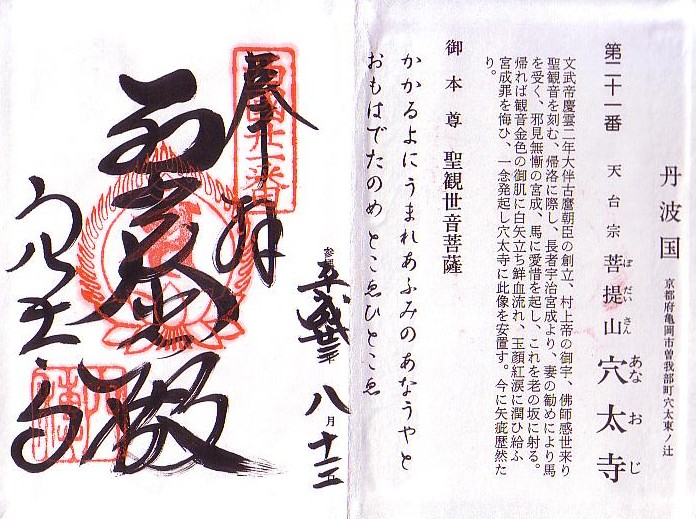 丹波国 京都府亀岡市曽我部町穴太東ノ辻
第二十一番 天台宗 菩提山 穴太寺
ぼだいさん あなおじ
文武帝慶雲二年大伴古麿朝臣の創立、村上帝の御宇、佛師感世来り
聖観音を刻む、帰洛に際し、長者宇治宮成より、妻の勧めにより馬
を受く、邪見無慚の宮成、馬に愛惜を起し、これを老の坂に射る。
帰れば観音金色の御肌に白矢立ち鮮血流れ、玉顔紅涙に潤ひ給ふ
宮成罪を悔ひ、一念発起し穴太寺に此像を安置す。今に矢疵歴然た
り。
御本尊 聖観世音菩薩
かかるよにうまれあふみのあなうやと
おもはでたのめとこゑひとこゑ
奉拝
西国廿一番
平成廿三年八月十三
穴太寺